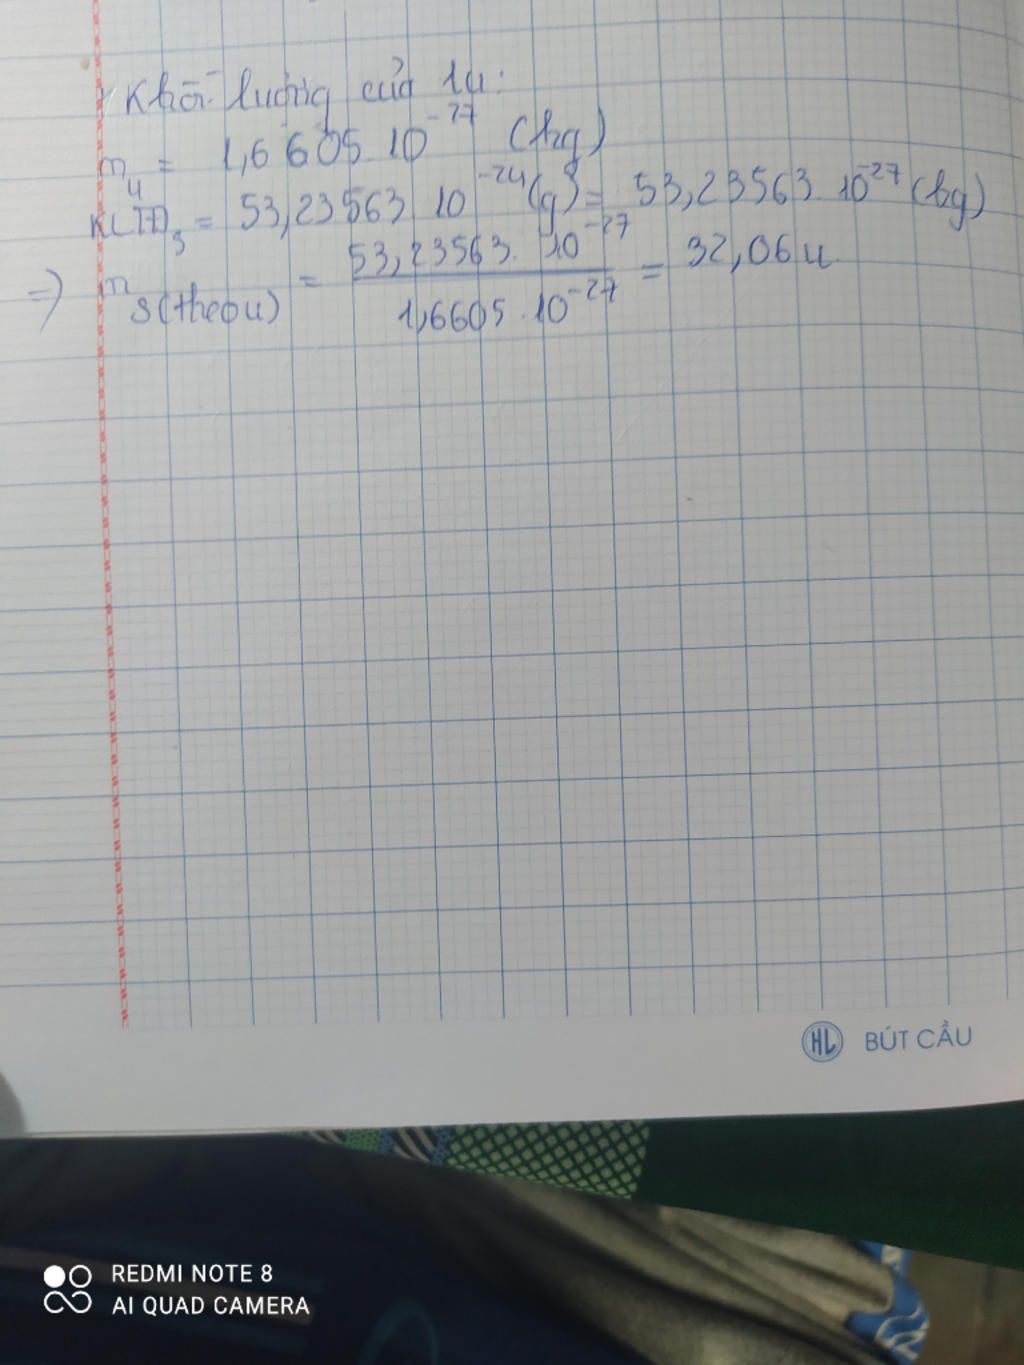 Khối lượng của 1u:
m_u = 1,6605 10^-27 (kg)
KLTĐ_S = 53,23563 10^-24 (g) = 53,23563. 10^-27 (kg)
=> m_S(theo u) = 53,23563. 10^-27 / 1,6605 . 10^-27 = 32,06 u
HL BÚT CẦU
REDMI NOTE 8
AI QUAD CAMERA